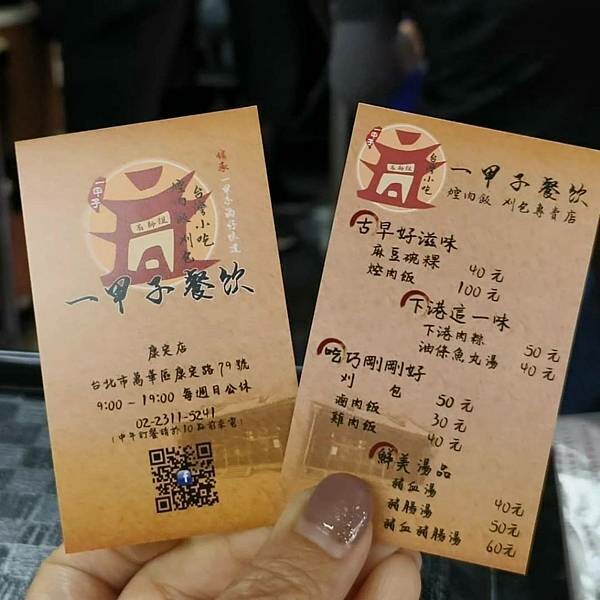 一甲子
台灣小吃
焢肉飯 刈包
一甲子餐飲
康定店
台北市萬華區康定路79號
9:00 ~ 19:00 每週日公休
02-2311-5241
(中午訂餐請於10點前來電)
一甲子
台灣小吃
一甲子餐飲
焢肉飯 刈包專賣店
古早好滋味
麻豆碗粿 40元
焢肉飯 100元
下港這一味
下港肉粽 50元
油條魚丸湯 40元
吃巧剛剛好
刈包 50元
滷肉飯 30元
雞肉飯 40元
鮮美湯品
豬血湯 40元
豬腸湯 50元
豬血豬腸湯 60元